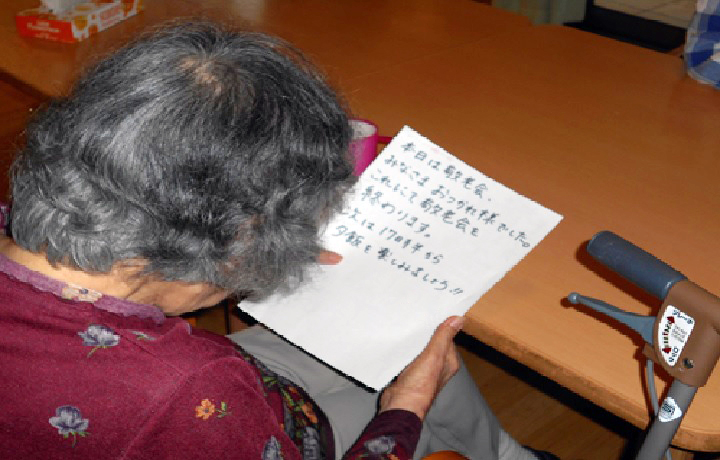 本日は敬老会、
みなさまおつかれ様でした。
これにて敬老会を
終わります。
次は17時半から
夕飯を楽しみましょう!!